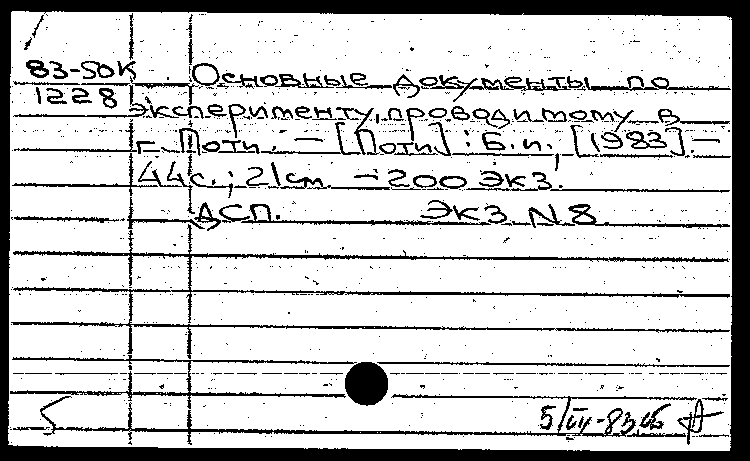 83-50K Основные документы по
1228 эксперименту, проводимому в
г. Поти. — [Поти] : Б.и., [1983]. —
44с.; 21см. — 200 экз.
ДСП. Экз N 8
5 5/VII-83